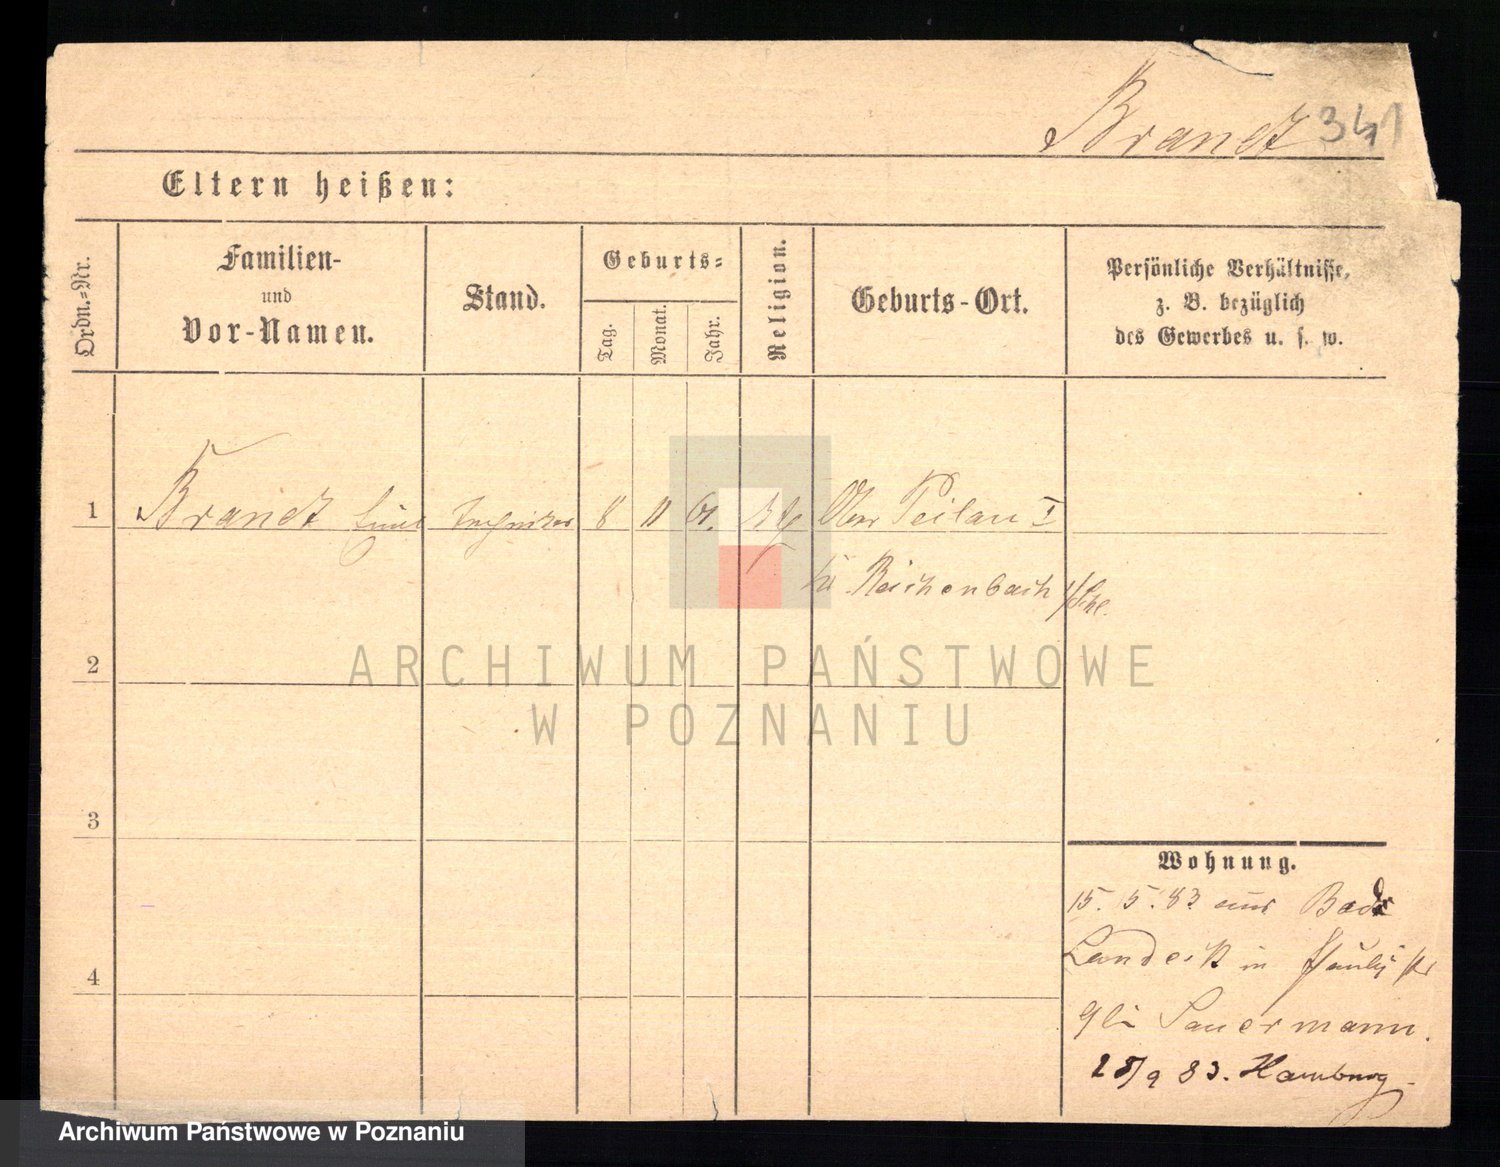 Brandt 341
Eltern heißen:
Ordn.=Nr.
Familien-
und
Vor-Namen.
Stand.
Geburts=
Tag.
Monat.
Jahr.
Religion.
Geburts-Ort.
Persönliche Verhältnisse,
z. B. bezüglich
des Gewerbes u. s. w.
1 Brandt Techniker 8 11 Ober Peilau I
Reichenbach
2
3
4
ARCHIWUM PAŃSTWOWE
W POZNANIU
Wohnung.
15. 5. 83 aus Bad
Landeck in
9 bei Sauermann.
28/9 83. Hamburg
Archiwum Państwowe w Poznaniu